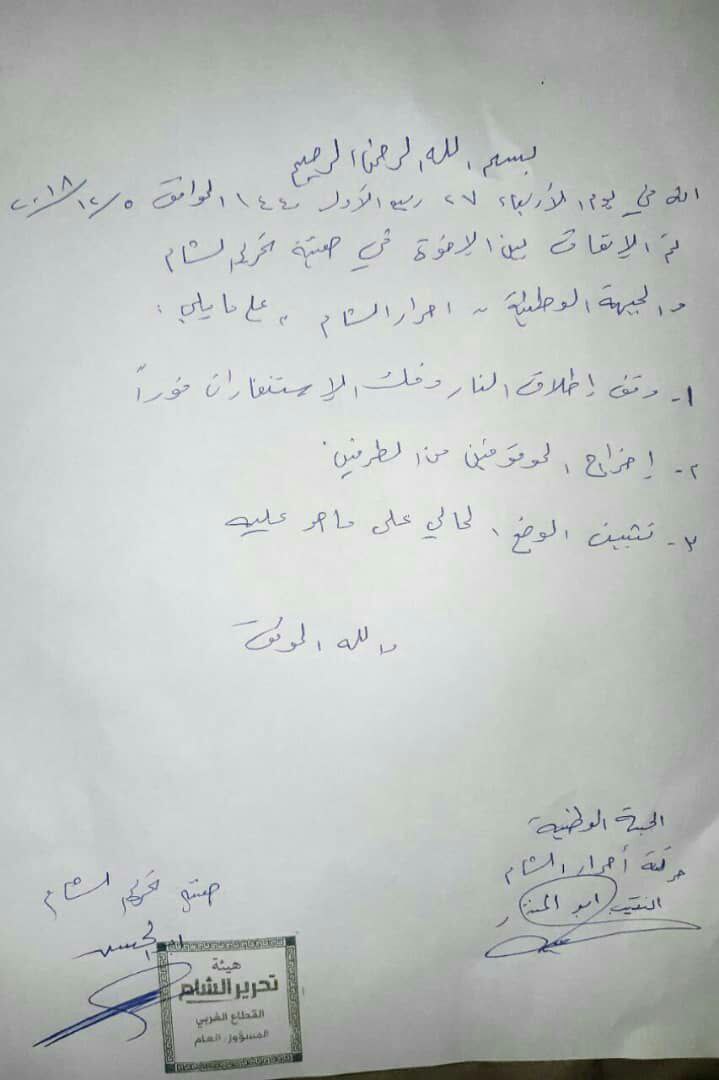 بسم الله الرحمن الرحيم
انه في يوم الأربعاء ٢٧ ربيع الأول ١٤٤٠ الموافق ٢٠١٨/١٢/٥
تم الإتفاق بين الإخوة في هيئة تحرير الشام
والجبهة الوطنية - احرار الشام ، على مايلي :
١- وقف إطلاق النار وفك الإستنفارات فوراً
٢- إخراج الموقوفين من الطرفين
٣- تثبيت الوضع الحالي على ماهو عليه
والله الموفق
الجبهة الوطنية
حركة أحرار الشام
النقيب ابو المنذر
هيئة تحرير الشام
هيئة
تحرير الشام
القطاع الغربي
المسؤول العام